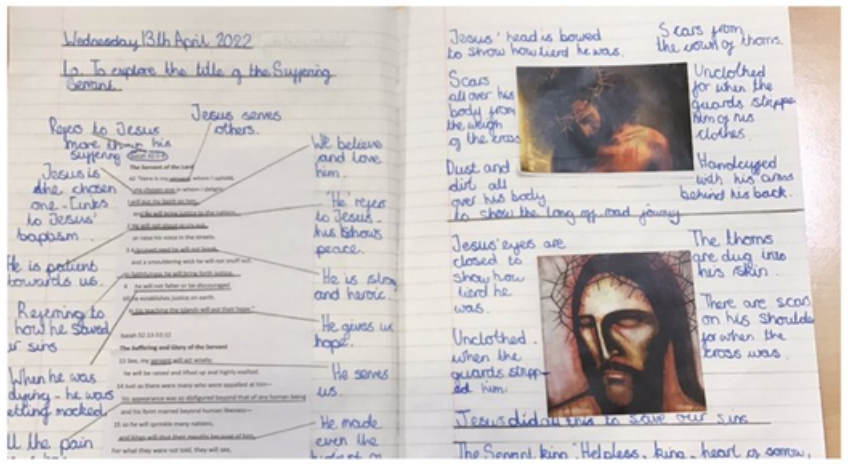 Wednesday 13th April 2022
Lo. To explore the title of the Suffering
Servant.
Jesus serves
others.
Refers to Jesus
more than his
suffering
Jesus is
the chosen
one - links
to Jesus'
baptism
He is patient
towards us.
Referring to
how he saved
ur sins
When he was
dying - he was
etting mocked.
ll the pain
The Servant of the Lord
42 "Here is my servant, whom I uphold,
my chosen one in whom I delight;
I will put my Spirit on him,
and he will bring justice to the nations.
2 He will not shout or cry out,
or raise his voice in the streets.
3 A bruised reed he will not break,
and a smouldering wick he will not snuff out.
In faithfulness he will bring forth justice;
4 he will not falter or be discouraged
till he establishes justice on earth.
In his teaching the islands will put their hope."
Isaiah 52:13-53:12
The Suffering and Glory of the Servant
13 See, my servant will act wisely;
he will be raised and lifted up and highly exalted.
14 Just as there were many who were appalled at him—
his appearance was so disfigured beyond that of any human being
and his form marred beyond human likeness—
15 so he will sprinkle many nations,
and kings will shut their mouths because of him.
For what they were not told, they will see,
We believe
and love
him.
'He' refers
to Jesus -
his shows
peace.
He is strong
and heroic.
He gives us
hope.
He serves
us.
He made
even the
Jesus' head is bowed
to show how tierd he was.
Scars from
the crown of thorns.
Scars
all over his
body from
the weigh
of the cross
Unclothed
for when the
guards strippe
him of his
clothes.
Dust and
dirt all
over his body
to show the long off road journey
Handcuffed
with his arms
behind his back.
Jesus' eyes are
closed to
show how
tierd he
was.
The thorns
are dug into
his skin.
Unclothed.
when the
guards stripp-
ed him.
There are scars
on his shoulde
for when the
cross was.
Jesus did all this to save our sins
The Servant king: Helpless, king, heart of sorrow,